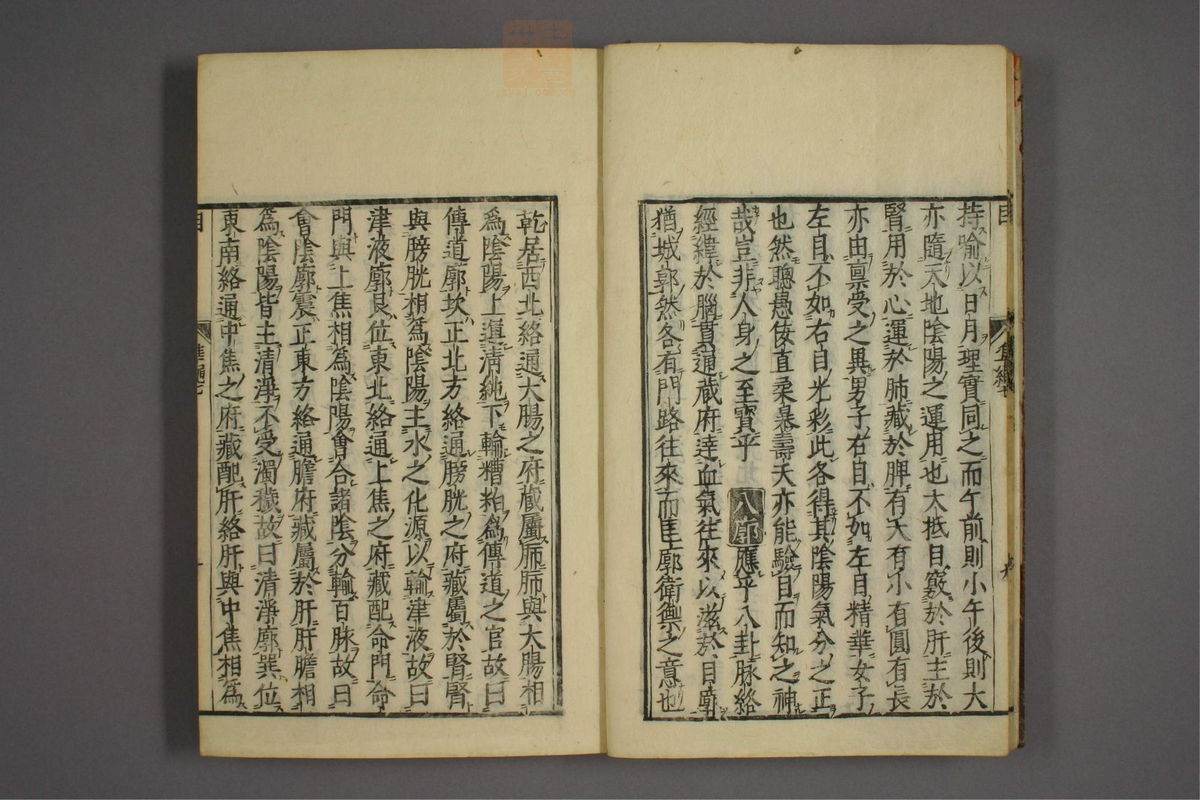 持喻以日月理實同之而午前則小午後則大
亦隨天地陰陽之運用也大抵目竅於肝主於
腎用於心運於肺藏於脾有大有小有圓有長
亦由禀受之異男子右目不如左目精華女子
左目不如右目光彩此各得其陰陽氣分之正
也然聰愚佞直柔暴壽夭亦能驗目而知之神
哉豈非人身之至寶乎 八廓應乎八卦脉絡
經緯於腦貫通藏府達血氣往來以滋於目廓
猶城郭然各有門路往來而匡廓衛禦之意也
乾居西北絡通大腸之府藏屬肺肺與大腸相
為陰陽上運清純下輸糟粕為傳道之官故曰
傳道廓坎正北方絡通膀胱之府藏屬於腎腎
與膀胱相為陰陽主水之化源以輸津液故曰
津液廓艮位東北絡通上焦之府藏配命門命
門與上焦相為陰陽會合諸陰分輸百脉故曰
會陰廓震正東方絡通膽府藏屬於肝肝膽相
為陰陽皆主清淨不受濁穢故曰清淨廓巽位
東南絡通中焦之府藏配肝絡肝與中焦相為